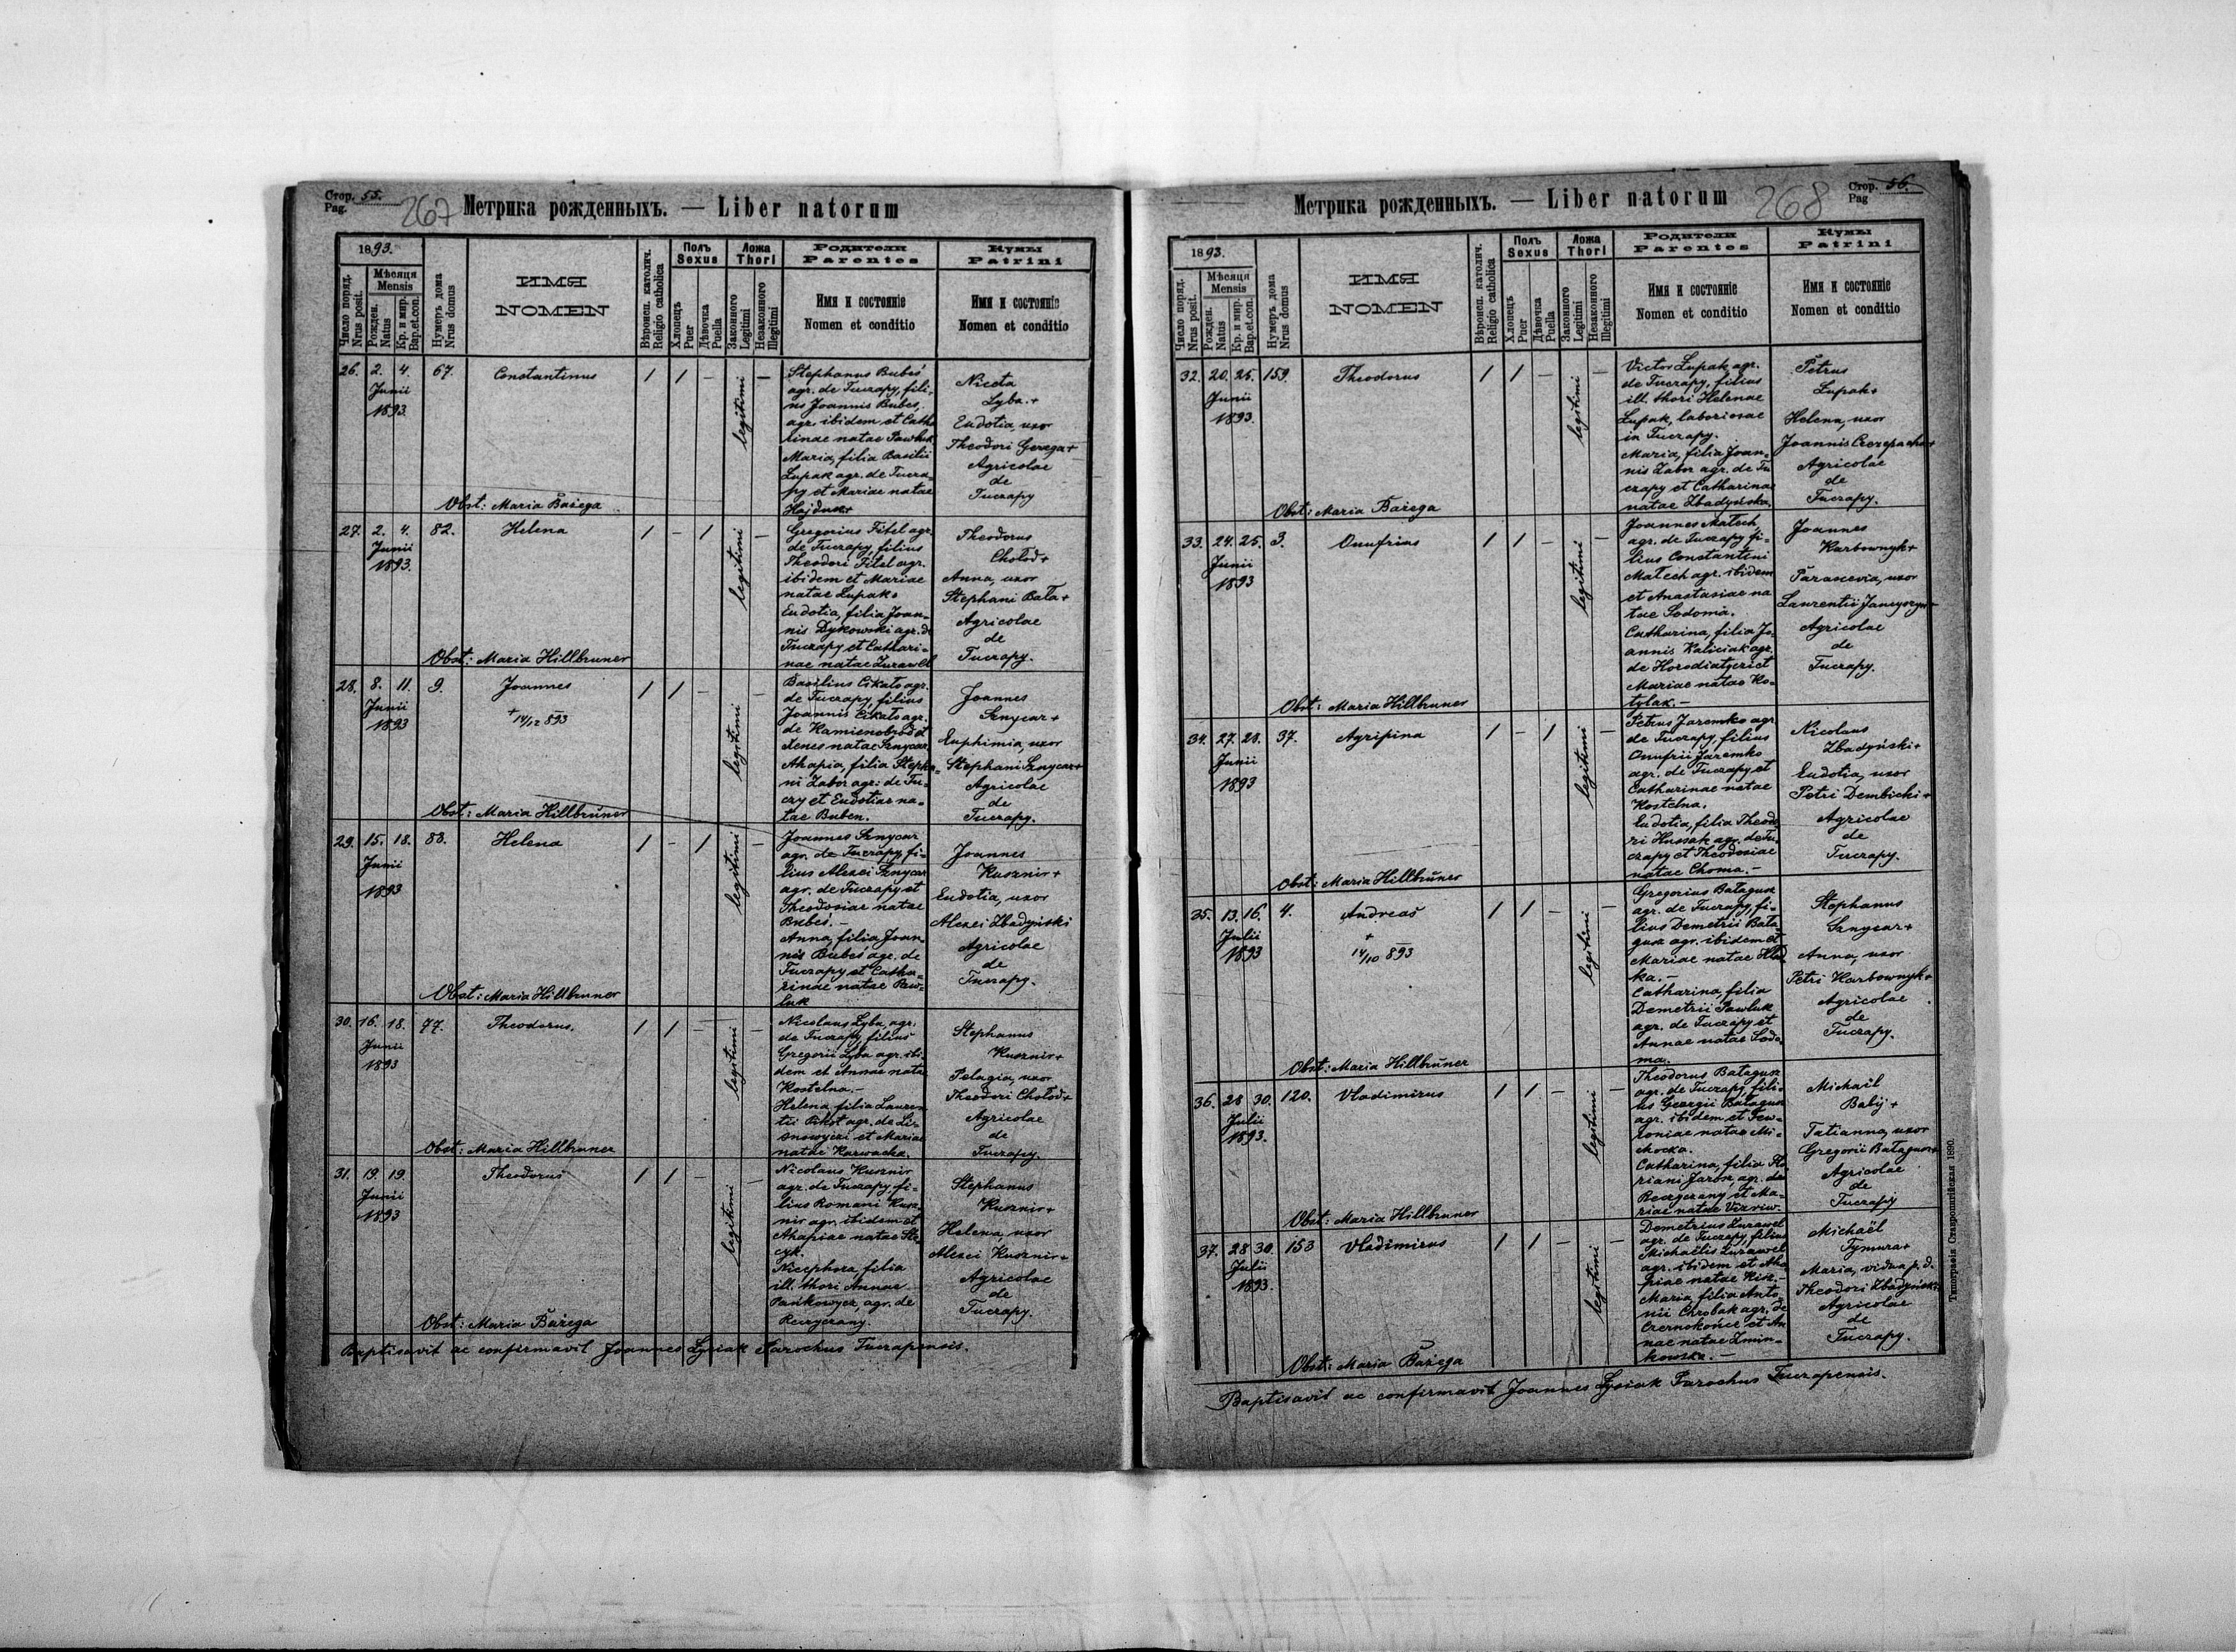 Стор. 55.
Pag.
267
Метрика рожденныхъ. — Liber natorum
1893.
Число поряд.
Nrus posit.
Мѣсяця
Mensis
Рожден.
Natus
Кр. и мир.
Bap. et con.
Нумеръ дома
Nrus domus
ИМЯ
NOMEN
Вѣроисп. католич.
Religio catholica
Полъ
Sexus
Хлопецъ
Puer
Дѣвочка
Puella
Ложа
Thori
Законного
Legitimi
Незаконного
Illegitimi
Родители
Parentes
Имя и состоянїе
Nomen et conditio
Кумы
Patrini
Имя и состоянїе
Nomen et conditio
26. 2. 4. 67. Constantinus / / – legitimi –
Junii
1893.
Stephanus Bubeś
agr. de Tuczapy, fili-
us Joannis Bubes,
agr. ibidem et Catha
rinae natae Pawluk
Maria, filia Basilii
Łupak agr. de Tucza-
py et Mariae natae
Hajduk+
Niceta
Lyba.+
Eudotia, uxor
Theodori Gerega+
Agricolae
de
Tuczapy
Obst: Maria Bażega
27. 2. 4. 82. Helena / – / legitimi –
Junii
1893.
Gregorius Fitel agr.
de Tuczapy, filius
Theodori Fitel agr.
ibidem et Mariae
natae Łupak+
Eudotia, filia Joan-
nis Dykowski agr. de
Tuczapy et Cathari-
nae natae Żurawel
Theodorus
Chołod+
Anna, uxor
Stephani Bała+
Agricolae
de
Tuczapy.
Obst: Maria Hillbruner
28. 8. 11. 9. Joannes / / – legitimi –
Junii
1893
+ 14/12 893
Basilius Cikało agr.
de Tuczapy, filius
Joannis Cikało agr.
de Kamienobrod et
Xenes natae Sznycar,
Ahapia, filia Stepha-
ni Zabor agr: de Tu-
czy et Eudotiae na-
tae Buben.
Joannes
Sznycar+
Euphimia, uxor
Stephani Sznycar+
Agricolae
de
Tuczapy.
Obst: Maria Hillbrüner
29. 15. 18. 83. Helena / – / legitimi –
Junii
1893
Joannes Sznycar
agr. de Tuczapy, fi-
lius Alexei Sznycar
agr. de Tuczapy et
Theodosiae natae
Bubeś.
Anna, filia Joan-
nis Bubeś agr. de
Tuczapy et Catha-
rinae natae Paw-
luk
Joannes
Kusznir+
Eudotia, uxor
Alexei Zbadyński
Agricolae
de
Tuczapy.
Obst: Maria Hillbruner
30. 16. 18. 77. Theodorus. / / – legitimi –
Junii
1893
Nicolaus Lyba, agr.
de Tuczapy, filius
Gregorii Lyba agr. ibi-
dem et Annae nata
Kostelna.–
Helena, filia Lauren
tii Pikot agr. de Li-
snowyczi et Mariae
natae Karwacka.
Stephanus
Kusznir+
Pelagia, uxor
Theodori Chołod+
Agricolae
de
Tuczapy.
Obst: Maria Hillbruner
31. 19. 19. Theodorus / / – legitimi –
Junii
1893
Nicolaus Kusznir
agr. de Tuczapy fi-
lius Romani Kusz
nir agr. ibidem et
Ahapiae natae Ste
cyk.
Nicephora, filia
ill. thori Annae
Pańkowycz, agr. de
Reczyczany.
Stephanus
Kusznir+
Helena, uxor
Alexei Kusznir+
Agricolae
de
Tuczapy.
Obst: Maria Bażega
Baptisavit ac confirmavit Joannes Łysiak Parochus Tuczapensis.
Стор. 56.
Pag
268
Метрика рожденныхъ. — Liber natorum
1893.
Число поряд.
Nrus posit.
Мѣсяця
Mensis
Рожден.
Natus
Кр. и мир.
Bap. et con.
Нумеръ дома
Nrus domus
ИМЯ
NOMEN
Вѣроисп. католич.
Religio catholica
Полъ
Sexus
Хлопецъ
Puer
Дѣвочка
Puella
Ложа
Thori
Законного
Legitimi
Незаконного
Illegitimi
Родители
Parentes
Имя и состоянїе
Nomen et conditio
Кумы
Patrini
Имя и состоянїе
Nomen et conditio
32. 20. 25. 159. Theodorus / / – legitimi –
Junii
1893.
Victor Łupak agr.
de Tuczapy, filius
ill. thori Helenae
Łupak, laboriosae
in Tuczapy.
Maria, filia Joan-
nis Zabor agr. de Tu
czapy et Catharinae
natae Zbadyńska.
Petrus
Łupak+
Helena, uxor
Joannis Czerepacha+
Agricolae
de
Tuczapy.
Obst: Maria Bażega
33. 24. 25. 3. Onufrius / / – legitimi –
Junii
1893
Joannes Matech,
agr. de Tuczapy fi-
lius Constantini
Matech agr. ibidem
et Anastasiae na
tae Sodoma.
Catharina, filia Jo-
annis Kaliciak agr.
de Horodiatyczi et
Mariae natae Ko-
tylak.–
Joannes
Karbownyk+
Parascevia, uxor
Agricolae
de
Tuczapy.
Obst: Maria Hillbruner
34. 27. 28. 37. Agripina / – / legitimi –
Junii
1893
Petrus Jaremko agr
de Tuczapy, filius
Onufrii Jaremko
agr. de Tuczapy et
Catharinae natae
Kostelna.
Eudotia, filia Theodo
ri Hussak agr. de Tu-
czapy et Theodosiae
natae Choma.–
Nicolaus
Zbadyński+
Eudotia, uxor
Petri Dembicki+
Agricolae
de
Tuczapy.
Obst: Maria Hillbrüner
35. 13. 16. 4. Andreas / / – legitimi –
Julii
1893
+
14/10 893
Gregorius Batagusz
agr. de Tuczapy, fi-
lius Demetrii Bata
gusz agr. ibidem et
Mariae natae Hład
ka.–
Catharina, filia
Demetrii Pawluk
agr. de Tuczapy et
Annae natae Sodo-
ma.
Stephanus
Sznycar+
Anna, uxor
Petri Karbownyk+
Agricolae
de
Tuczapy.
Obst: Maria Hillbrüner
36. 28 30. 120. Vladimirus / / – legitimi –
Julii
1893.
Theodorus Batagusz
agr. de Tuczapy, fili-
us Georgii Batagusz
agr. ibidem et Few-
roniae natae Mi-
chocka.
Catharina, filia Flo-
riani Jarosz, agr. de
Reczyczany et Ma-
riae natae
Michaël
Babij+
Tatianna, uxor
Gregorii Batagusz+
Agricolae
de
Tuczapy
Obst: Maria Hillbruner
37. 28 30. 153 Vladimirus / / – legitimi –
Julii
1893.
Demetrius Żurawel
agr. de Tuczapy, filius
Michaëlis Żurawel
agr. ibidem et Aha
piae natae Kisz.–
Maria, filia Anto-
nii Chrobak agr. de
Czernokońce et An
nae natae Zmin-
kowska.–
Michaël
Tymura+
Maria, vidua p. d.
Theodori Zbadyński+
Agricolae
de
Tuczapy.
Obst: Maria Bażega
Baptisavit ac confirmavit Joannes Łysiak Parochus Tuczapensis.
Типографія Ставропигійская 1890.